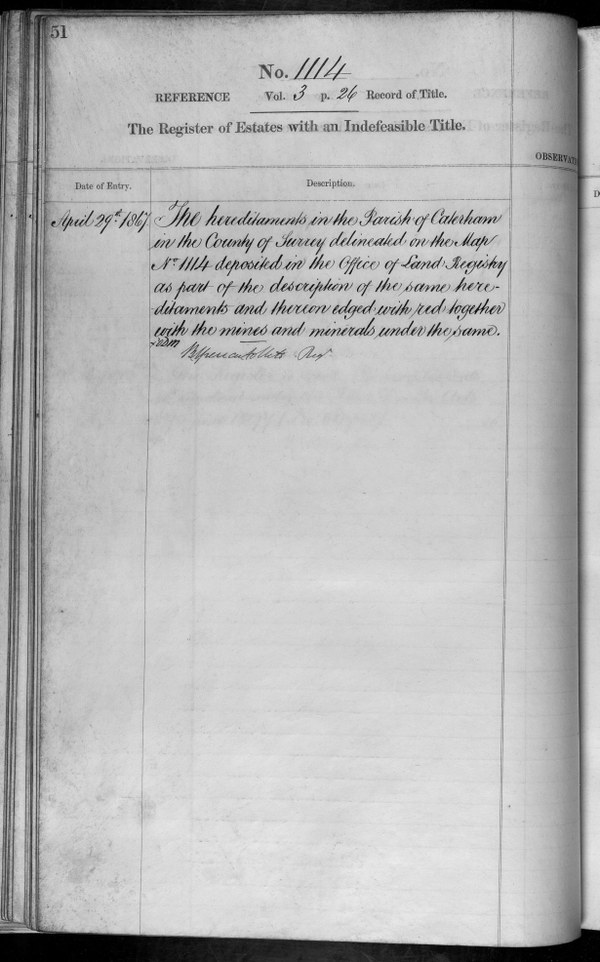 51
No. 1114
REFERENCE Vol. 3 p. 26 Record of Title.
The Register of Estates with an Indefeasible Title.
OBSERVAT
Date of Entry.
Description.
D
April 29th 1867
The hereditaments in the Parish of Caterham
in the County of Surrey delineated on the Map
No. 1114 deposited in the Office of Land Registry
as part of the description of the same here-
ditaments and thereon edged with red together
with the mines and minerals under the same.
Regr